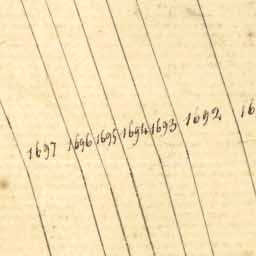 1697 1696 1695 1694 1693 1692 16